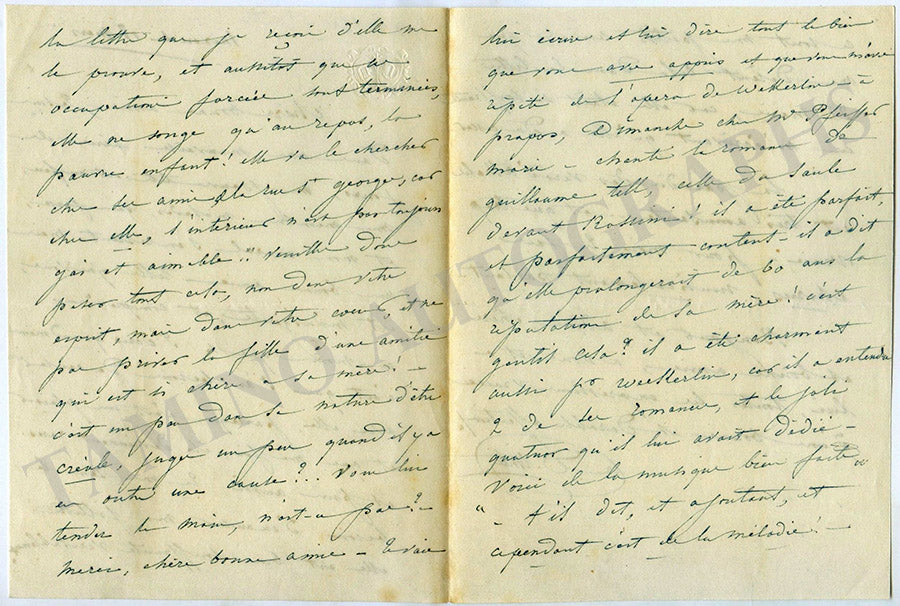 la lettre que je reçois d'elle me
le prouve, et aussitôt que les
occupations forcées sont terminées,
elle ne songe qu'au repos, la
pauvre enfant! elle va le chercher
chez ses amies de la rue St george, car
chez elle, l'intérieur n'est pas toujours
gai et aimable!! Veuillez donc
peser tout cela, non dans votre
esprit, mais dans votre coeur, et ne
pas priver la fille d'une amitié
qui est si chère a sa mère! -
c'est un peu dans sa nature d'être
créole, jugez un peu quand il y a
en outre une cause?... Vous lui
tendez la main, n'est-ce pas? -
merci, chère bonne amie -
lui écrire et lui dire tout le bien
que vous avez appris et que vous m'avez
répété de l'opéra de Wekerlin - à
propos, Dimanche chez Mr Pfeiffer
marie - chanté la romance de
guillaume tell, celle du Saule
devant Rossini! il a été parfait,
et parfaitement content - il a dit
qu'elle prolongerait de 60 ans la
réputation de sa mère! c'est
gentil cela? il a été charmant
aussi pr Weekerlin, car il a entendu
2 de ses romances, et le joli
quatuor qu'il lui avait dédié -
Voici de la musique bien faite"
" - t'il dit, et ajoutant, et
cependant c'est de la mélodie! -
TAMINO AUTOGRAPHS